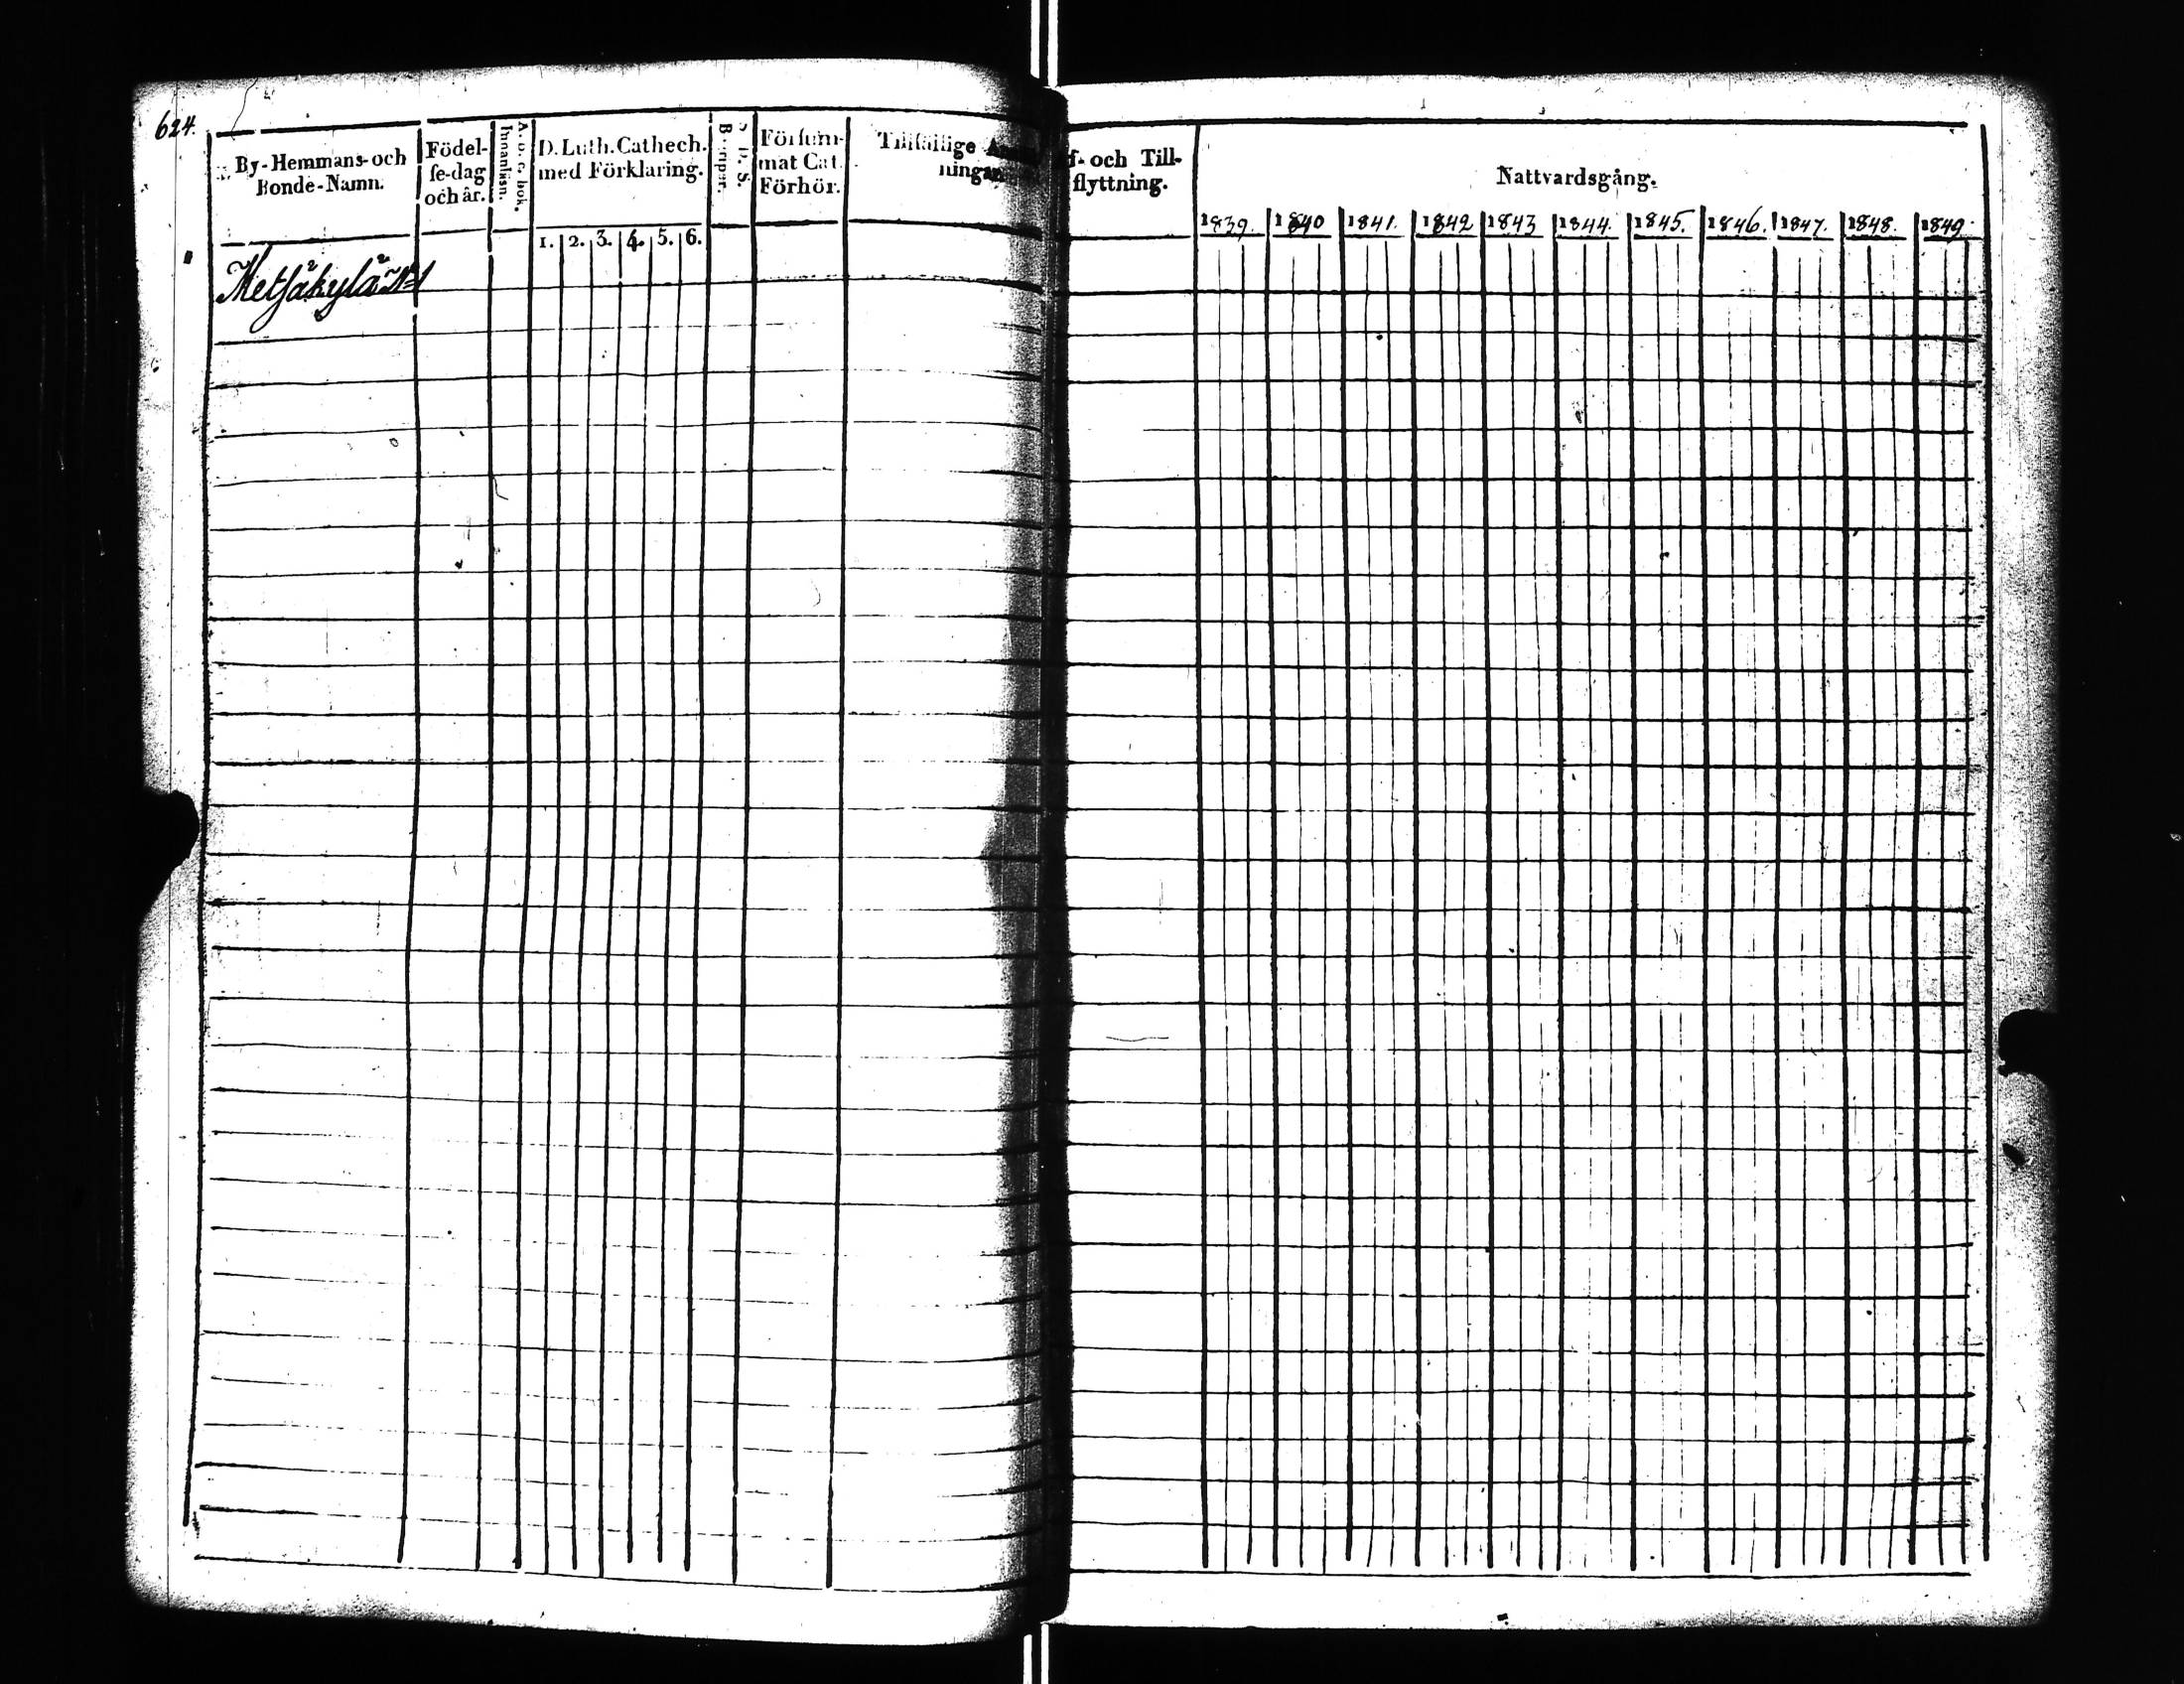 624.
By-Hemmans- och
Bonde-Namn.
Födel-
se-dag
och år.
A. o. c. bok.
Innanläsn.
D. Luth. Cathech.
med Förklaring.
1. 2. 3. 4. 5. 6.
D. S.
Försum-
mat Cat.
Förhör.
Tillfällige
ningar
f- och Till-
flyttning.
Nattvardsgång.
1839. 1840 1841. 1842 1843 1844. 1845. 1846. 1847. 1848. 1849.
Metsäkylä No 1